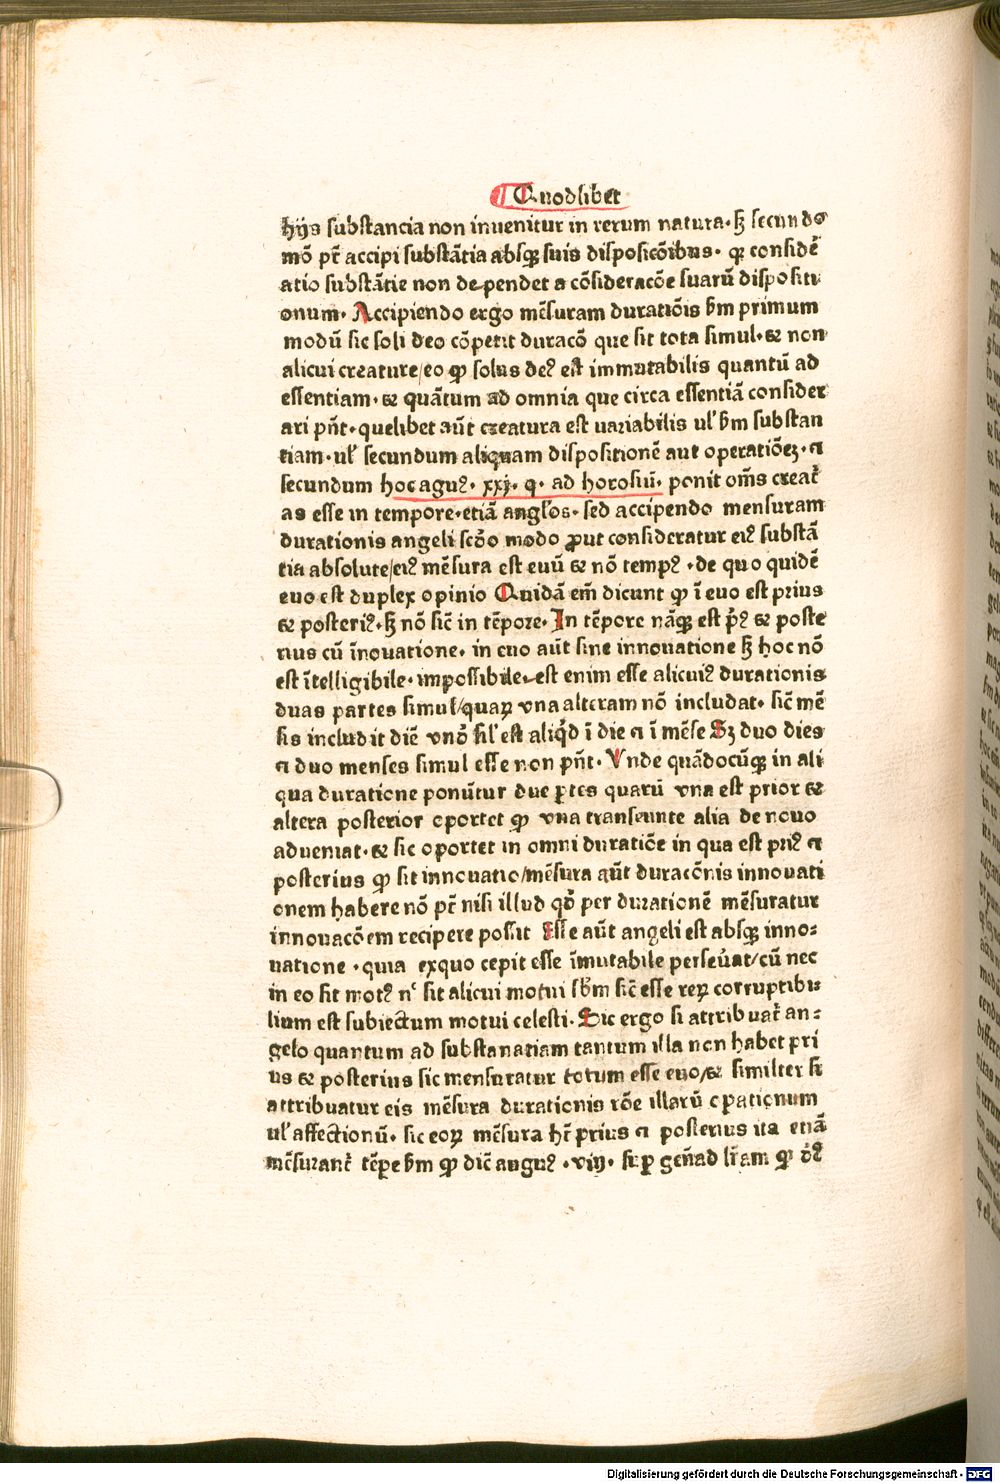 Quodlibet
hijs substancia non inuenitur in rerum natura. sꝫ secundo
mō pt̄ accipi substātia absqꝫ suis disposicōibus. qꝛ considē
atio substātie non dependet a cōsideracōe suarū dispositi
onum. Accipiendo ergo mēsuram duratiōis ẜm primum
modū sic soli deo cōpetit duracō que sit tota simul. ⁊ non
alicui creature/eo ꝙ solus deꝰ est immutabilis quantū ad
essentiam. ⁊ quātum ad omnia que circa essentiā consider
ari pn̄t. quelibet aūt creatura est uariabilis ul̓ ẜm substan
tiam. ul̓ secundum aliquam dispositionē aut operatiōeꝫ. ⁊
secundum hoc aguꝰ. xxj. q. ad horosiū. ponit om̄s creat᷑
as esse in tempore. etiā angl̓os. sed accipendo mensuram
durationis angeli scd̓o modo ꝓut consideratur eiꝰ substā
tia absolute/eiꝰ mēsura est euū ⁊ nō tempꝰ. de quo quidē
euo est duplex opinio Quidā em̄ dicunt ꝙ ī euo est prius
⁊ posteriꝰ. sꝫ nō sic̄ in tēpore. In tēpore nāqꝫ est p̓ꝰ ⁊ poste
rius cū īnouatione. in euo aūt sine innouatione sꝫ hoc nō
est ītelligibile. impossibile. est enim esse alicuiꝰ durationis
duas partes simul/quaꝝ vna alteram nō includat. sic̄ mē
sis includit diē vnō sil̓ est aliq̓d ī die ⁊ ī mēse Sꝫ duo dies
⁊ duo menses simul esse non pn̄t. Vnde quādocūqꝫ in ali
qua duratione ponūtur due ꝑtes quarū vna est prior ⁊
altera posterior oportet ꝙ vna transeunte alia de nouo
adueniat. ⁊ sic oportet in omni duratiōe in qua est priꝰ ⁊
posterius ꝙ sit innouatio/mēsura aūt duracōnis innouati
onem habere nō pt̄ nisi illud qd̓ per durationē mēsuratur
innouacōem recipere possit Esse aūt angeli est absqꝫ inno⸗
uatione. quia exquo cepit esse īmutabile perseūat/cū nec
in eo sit motꝰ nͨ sit alicui motui sb̓m sic̄ esse reꝝ corruptibi⸗
lium est subiectum motui celesti. Sic ergo si attribuat᷑ an⸗
gelo quantum ad substanatiam tantum illa non habet pri
us ⁊ posterius sic mensuratur totum esse euo/⁊ similter si
attribuatur eis mēsura durationis rōe illarū oꝑationum
ul̓ affectionū. sic eoꝝ mēsura hꝫ prius ⁊ posterius ita etiā
mēsurant᷑ tēpe ẜm ꝙ dic̄ anguꝰ. viij. suꝑ gen̄ ad lr̄am ꝙ dꝰ
Digitalisierung gefördert durch die Deutsche Forschungsgemeinschaft - DFG